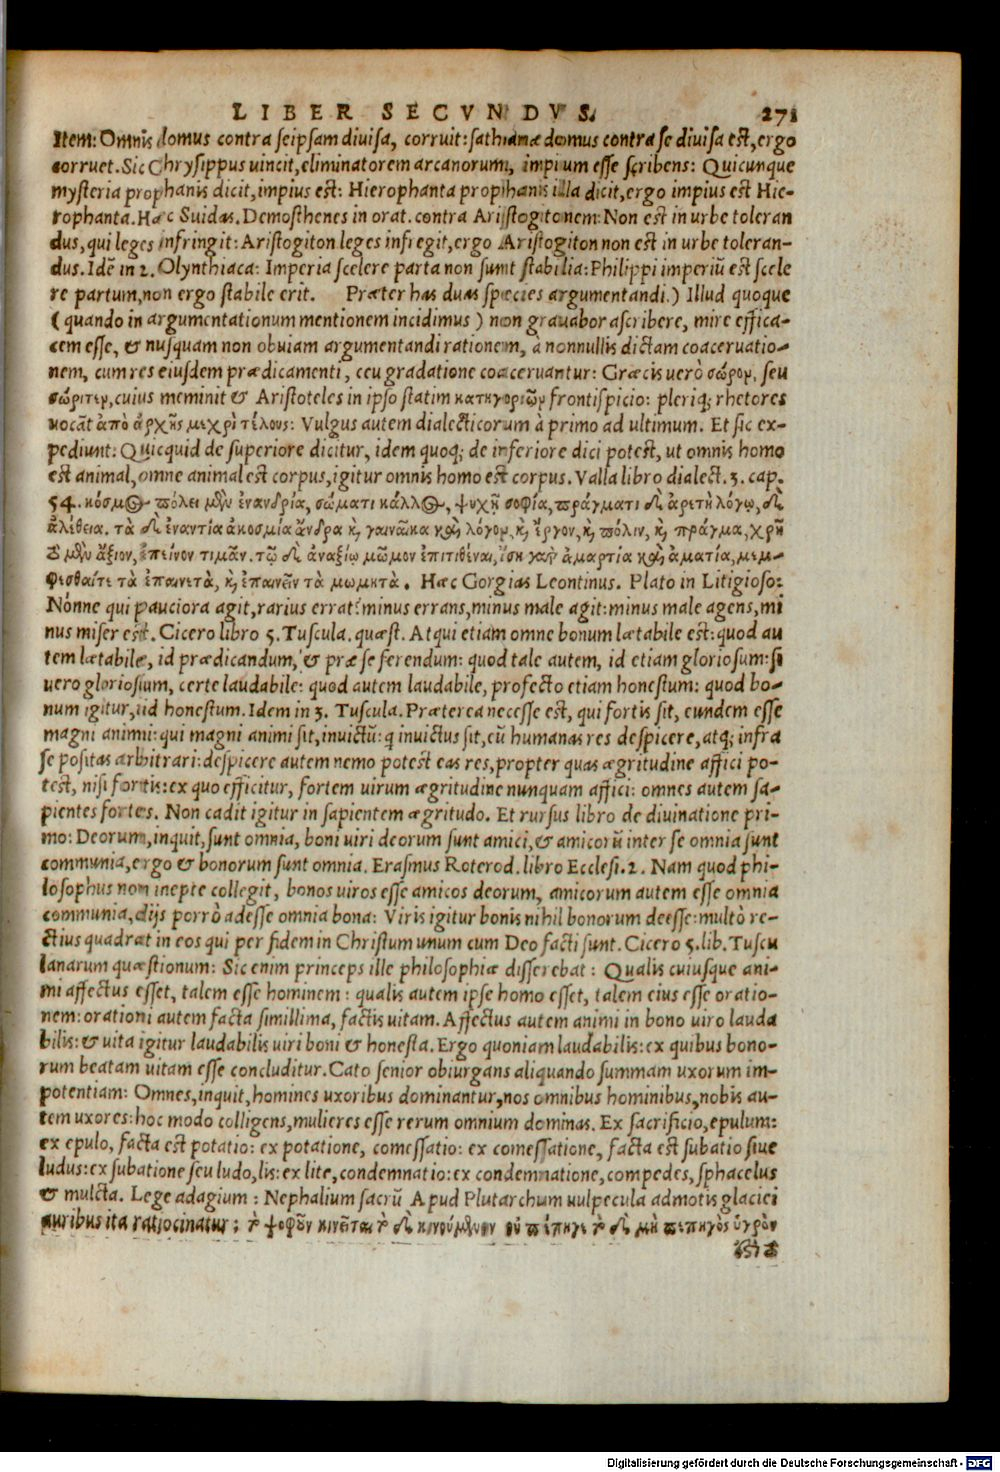 LIBER SECVNDVS. 271
Item: Omnis domus contra seipsam diuisa, corruit: sathanæ domus contra se diuisa est, ergo
corruet. Sic Chrysippus uincit, eliminatorem arcanorum, impium esse scribens: Quicunque
mysteria prophanis dicit, impius est: Hierophanta prophanis illa dicit, ergo impius est Hie-
rophanta. Hæc Suidas. Demosthenes in orat. contra Aristogitonem: Non est in urbe toleran
dus, qui leges infringit: Aristogiton leges infregit, ergo Aristogiton non est in urbe toleran-
dus. Idē in 2. Olynthiaca: Imperia scelere parta non sunt stabilia: Philippi imperiū est scele
re partum, non ergo stabile erit. Præter has duas species argumentandi.) Illud quoque
(quando in argumentationum mentionem incidimus) non grauabor ascribere, mire effica-
cem esse, & nusquam non obuiam argumentandi rationem, à nonnullis dictam coaceruatio-
nem, cum res eiusdem prædicamenti, ceu gradatione coaceruantur: Græcis uerò σώρον, seu
σώριτην, cuius meminit & Aristoteles in ipso statim κατηγοριῶν frontispicio: pleriq; rhetores
uocāt ἀπὸ ἀρχῆς μεχρὶ τέλους: Vulgus autem dialecticorum à primo ad ultimum. Et sic ex-
pediunt: Quicquid de superiore dicitur, idem quoq; de inferiore dici potest, ut omnis homo
est animal, omne animal est corpus, igitur omnis homo est corpus. Valla libro dialect. 3. cap.
54. κόσμος πόλει μὲν ἐνανδρία, σώματι κάλλος, ψυχῇ σοφία, πράγματι δὲ ἀρετὴ λόγῳ, δὲ
ἀλήθεια. τὰ δὲ ἐναντία ἀκοσμία ἄνδρα κỳ γυναῖκα καὶ λόγον, κỳ ἔργον, κỳ πόλιν, κỳ πράγμα, χρὴ
μὲν ἄξιον, ἐπαίνον τιμᾶν. τῷ δὲ ἀναξίῳ μῶμον ἐπιτιθέναι, ἴση γὰρ ἁμαρτία καὶ ἀματία, μεμ-
φεσθαί τε τὰ ἐπαινετὰ, κỳ ἐπαινεῖν τὰ μωμητὰ. Hæc Gorgias Leontinus. Plato in Litigioso:
Nónne qui pauciora agit, rarius errat? minus errans, minus male agit: minus male agens, mi
nus miser est. Cicero libro 5. Tuscula. quæst. Atqui etiam omne bonum lætabile est: quod au
tem lætabile, id prædicandum, & præ se ferendum: quod tale autem, id etiam gloriosum: si
uero gloriosum, certe laudabile: quod autem laudabile, profecto etiam honestum: quod bo-
num igitur, id honestum. Idem in 3. Tuscula. Præterea necesse est, qui fortis sit, eundem esse
magni animi: qui magni animi sit, inuictū: q inuictus sit, eū humanas res despicere, atq; infra
se positas arbitrari: despicere autem nemo potest eas res, propter quas ægritudine affici po-
test, nisi fortis: ex quo efficitur, fortem uirum ægritudine nunquam affici: omnes autem sa-
pientes fortes. Non cadit igitur in sapientem ægritudo. Et rursus libro de diuinatione pri-
mo: Deorum, inquit, sunt omnia, boni uiri deorum sunt amici, & amicorū inter se omnia sunt
communia, ergo & bonorum sunt omnia. Erasmus Roterod. libro Ecclesi. 2. Nam quod phi-
losophus non inepte collegit, bonos uiros esse amicos deorum, amicorum autem esse omnia
communia, dijs porrò adesse omnia bona: Viris igitur bonis nihil bonorum deesse: multò re-
ctius quadrat in eos qui per fidem in Christum unum cum Deo facti sunt. Cicero 5. lib. Tuscu
lanarum quæstionum: Sic enim princeps ille philosophiæ disserebat: Qualis cuiusque ani-
mi affectus esset, talem esse hominem: qualis autem ipse homo esset, talem eius esse oratio-
nem: orationi autem facta simillima, factis uitam. Affectus autem animi in bono uiro lauda
bilis: & uita igitur laudabilis uiri boni & honesta. Ergo quoniam laudabilis: ex quibus bono-
rum beatam uitam esse concluditur. Cato senior obiurgans aliquando summam uxorum im-
potentiam: Omnes, inquit, homines uxoribus dominantur, nos omnibus hominibus, nobis au-
tem uxores: hoc modo colligens, mulieres esse rerum omnium dominas. Ex sacrificio, epulum:
ex epulo, facta est potatio: ex potatione, comessatio: ex comessatione, facta est subatio siue
ludus: ex subatione seu ludo, lis: ex lite, condemnatio: ex condemnatione, compedes, sphacelus
& mulcta. Lege adagium: Nephalium sacrū Apud Plutarchum uulpecula admotis glaciei
auribus ita ratiocinatur: τὸ ψοφοῦν κινεῖται τὸ δὲ κινούμενον οὐ πέπηγε τὸ δὲ μὴ πεπηγὸς ὑγρὸν
Digitalisierung gefördert durch die Deutsche Forschungsgemeinschaft - DFG